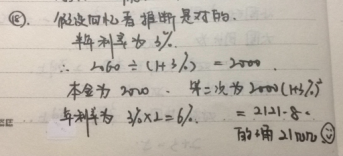 ⑱. 假设回忆者推断是对的.
半年利率为 3%.
∴ 2060 ÷ (1+3%) = 2000.
本金为 2000. 第二次为 2000(1+3%)²
年利率为 3%×2=6%. = 2121.8.
的确 21